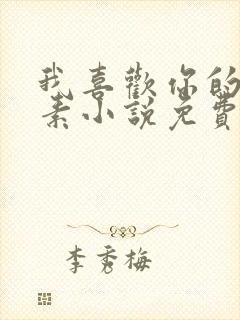 我喜歡你的
素小說免費
李秀梅